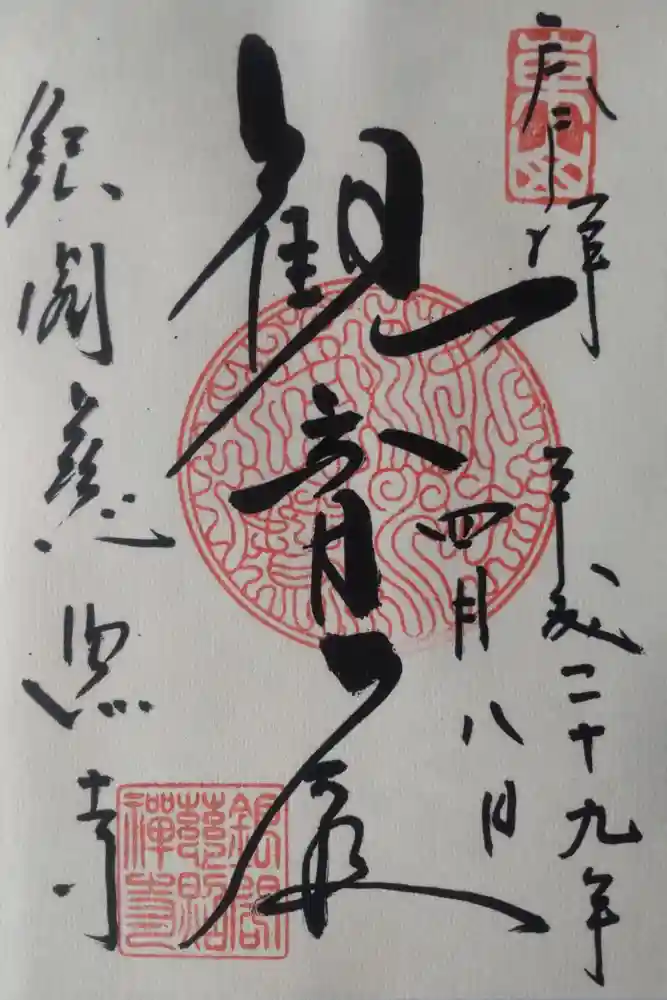 奉拝
平成二十九年
四月八日
観音殿
銀閣慈照寺
東山
銀閣
慈照
禅寺